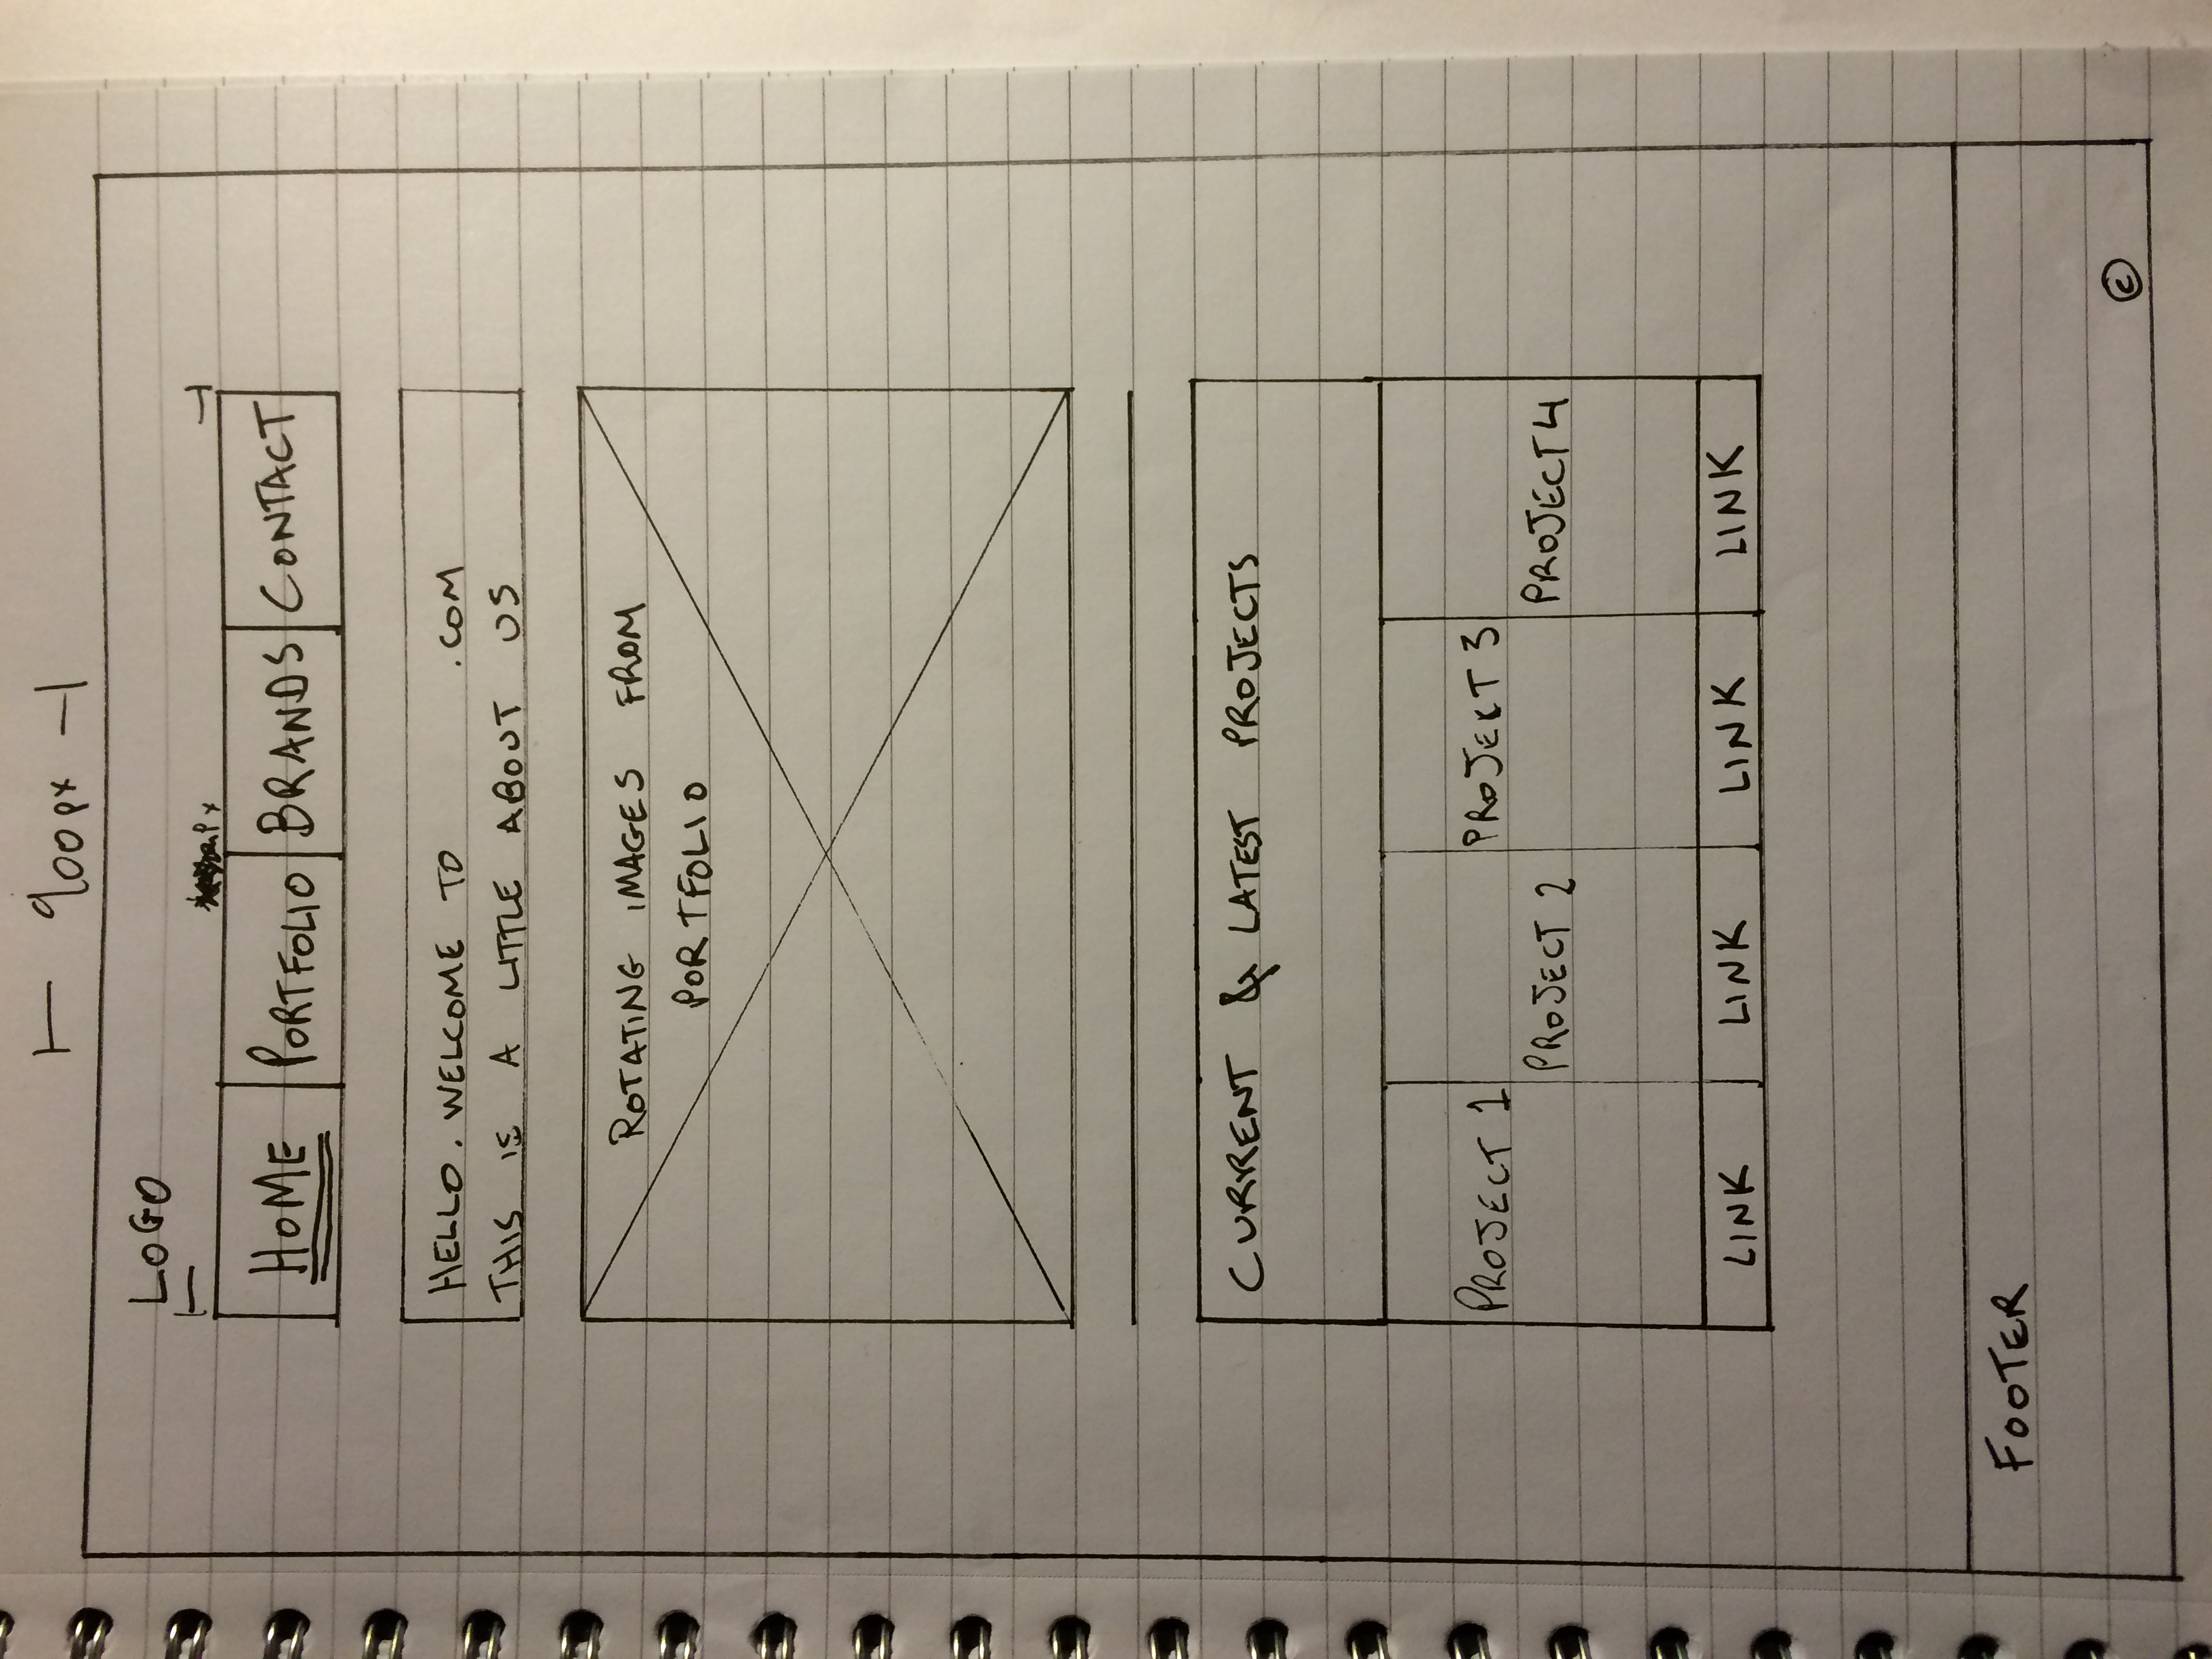 900px
LOGO
Px
HOME PORTFOLIO BRANDS CONTACT
HELLO. WELCOME TO .COM
THIS IS A LITTLE ABOUT US
ROTATING IMAGES FROM
PORTFOLIO
CURRENT & LATEST PROJECTS
PROJECT 1 PROJECT 3
PROJECT 2 PROJECT 4
LINK LINK LINK LINK
FOOTER
©